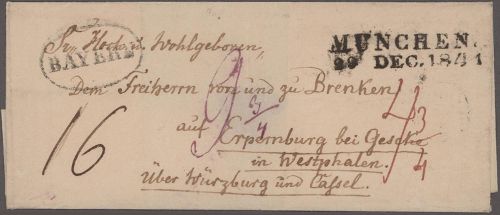 BAYERN
MÜNCHEN.
29 DEC. 1841
Sr. Hoch u. Wohlgeboren,
Dem Freiherrn von und zu Brenken
auf Erpernburg bei Geseke
in Westphalen.
Über Würzburg und Cassel.
16
9 3/4
4 3/4